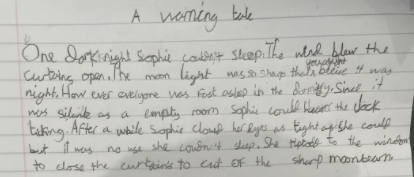 A warning tale
One dark night Sophie couldn't sleep. The wind blew the
curtains open. The moon light was so sharp that you wouldn't
beleive it was
night. How ever everyone was fast asleep in the . Since it
was silente as a empty room Sophie could hear the clock
ticking. After a while Sophie closed her eyes as tight as she could
but it was no use she couldn't sleep. She tiptoed to the window
to close the curtains to cut of the sharp moonbeam